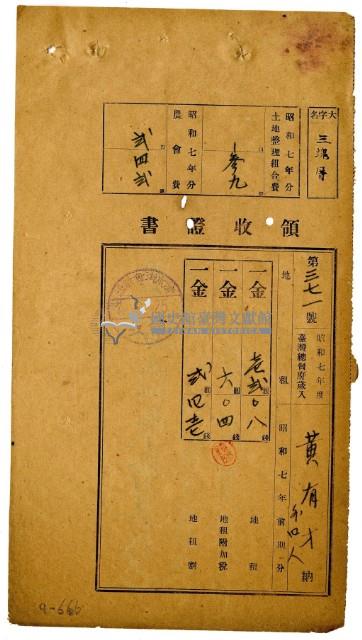 大字名
三塊厝
昭和七年分
土地整理組合費
參九
昭和七年分
農會費
貳四貳
領收證書
第三七一號
昭和七年度
臺灣總督府歲入
黃有才
納
地租
昭和七年前期分
一金
壱貳〇八
錢
地租
一金
六〇四
錢
地租附加稅
一金
貳四壱
錢
地租割
國史館臺灣文獻館
9-666